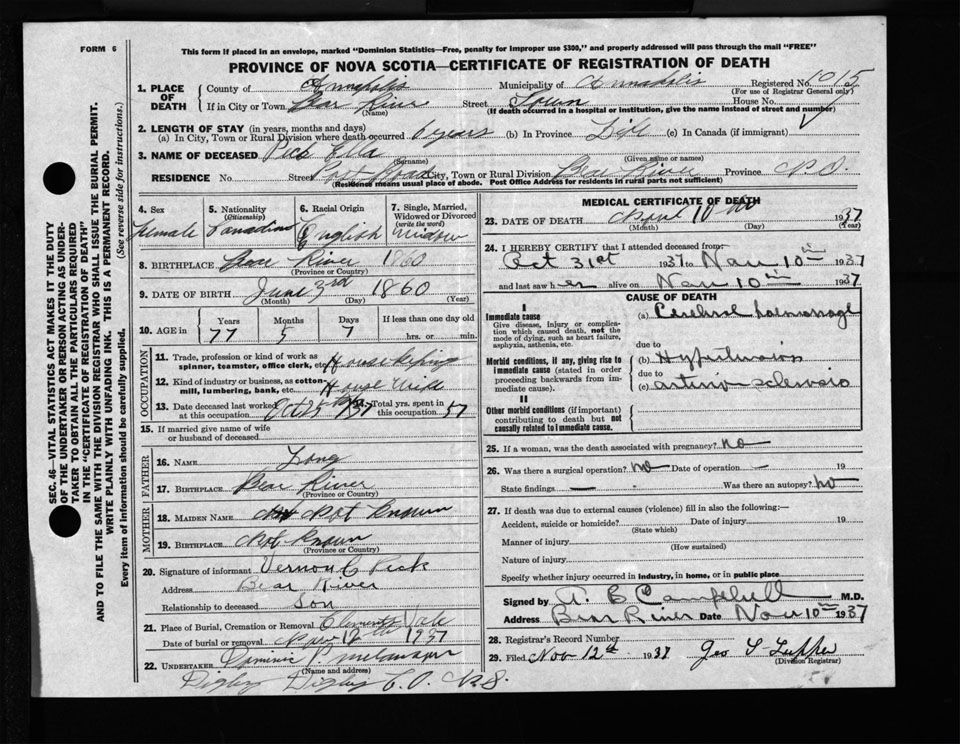 FORM 6
This form if placed in an envelope, marked "Dominion Statistics—Free, penalty for improper use $300," and properly addressed will pass through the mail "FREE"
PROVINCE OF NOVA SCOTIA—CERTIFICATE OF REGISTRATION OF DEATH
SEC. 46—VITAL STATISTICS ACT MAKES IT THE DUTY
OF THE UNDERTAKER OR PERSON ACTING AS UNDER-
TAKER TO OBTAIN ALL THE PARTICULARS REQUIRED
IN THE "CERTIFICATE OF REGISTRATION OF DEATH"
AND TO FILE THE SAME WITH THE DIVISION REGISTRAR WHO SHALL ISSUE THE BURIAL PERMIT.
WRITE PLAINLY WITH UNFADING INK. THIS IS A PERMANENT RECORD.
Every item of information should be carefully supplied. (See reverse side for instructions.)
1. PLACE OF DEATH
County of Annapolis Municipality of Annapolis Registered No. 1015
(For use of Registrar General only)
If in City or Town Bear River Street Town House No.
(Name) (If death occurred in a hospital or institution, give the name instead of street and number)
2. LENGTH OF STAY (in years, months and days)
(a) In City, Town or Rural Division where death occurred years (b) In Province Life (c) In Canada (if immigrant)
3. NAME OF DECEASED Peck Eva
(Surname) (Given name or names)
RESIDENCE No. Street Post Road City, Town or Rural Division Bear River Province N.S.
(Residence means usual place of abode. Post Office Address for residents in rural parts not sufficient)
4. Sex Female
5. Nationality (Citizenship) Canadian
6. Racial Origin English
7. Single, Married, Widowed or Divorced (write the word) Widow
8. BIRTHPLACE Bear River 1860
(Province or Country)
9. DATE OF BIRTH June 3rd 1860
(Month) (Day) (Year)
10. AGE in Years Months Days If less than one day old
77 5 7 hrs. or min.
OCCUPATION
11. Trade, profession or kind of work as spinner, teamster, office clerk, etc. House Keeping
12. Kind of industry or business, as cotton mill, lumbering, bank, etc. House Wife
13. Date deceased last worked at this occupation Oct 25 1937 Total yrs. spent in this occupation 57
15. If married give name of wife or husband of deceased
FATHER
16. NAME Long
17. BIRTHPLACE Bear River
(Province or Country)
MOTHER
18. MAIDEN NAME Not Known
19. BIRTHPLACE Not Known
(Province or Country)
20. Signature of informant Vernon C Peck
Address Bear River
Relationship to deceased Son
21. Place of Burial, Cremation or Removal Clements Vale
Date of burial or removal Nov 12th 1937
22. UNDERTAKER Dominic
(Name and address)
Digby Digby Co. N.S.
MEDICAL CERTIFICATE OF DEATH
23. DATE OF DEATH 10 1937
(Month) (Day) (Year)
24. I HEREBY CERTIFY that I attended deceased from:
Oct 31st 1937 to Nov 10th 1937
and last saw her alive on Nov 10th 1937
CAUSE OF DEATH
I
Immediate cause
Give disease, injury or complication which caused death, not the mode of dying, such as heart failure, asphyxia, asthenia, etc.
(a) Cerebral haemorrhage
due to
Morbid conditions, if any, giving rise to immediate cause (stated in order proceeding backwards from immediate cause).
(b) Hypertension
due to
(c) arterio sclerosis
II
Other morbid conditions (if important) contributing to death but not causally related to immediate cause.
25. If a woman, was the death associated with pregnancy? no
26. Was there a surgical operation? no Date of operation — 19
State findings — Was there an autopsy? no
27. If death was due to external causes (violence) fill in also the following:—
Accident, suicide or homicide? Date of injury 19
(State which)
Manner of injury
(How sustained)
Nature of injury
Specify whether injury occurred in industry, in home, or in public place
Signed by A. B Campbell M.D.
Address Bear River Date Nov 10th 1937
28. Registrar's Record Number
29. Filed Nov 12th 1937 Geo
(Division Registrar)